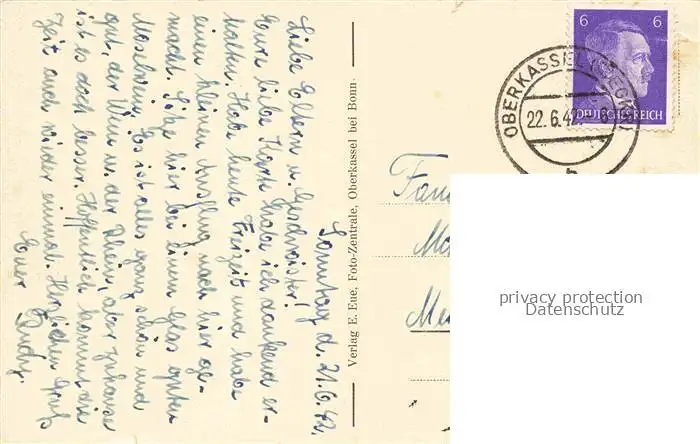 Sonntag d. 21.6.42.
Liebe Eltern u. Geschwister!
Eure liebe Karte habe ich dankend er-
halten. Habe heute Freizeit und habe
einen kleinen Ausflug nach hier ge-
macht. Sitze hier bei einem Glas guten
Moselwein. Es ist alles ganz schön und
gut, der Wein u. der Rhein, aber zuhause
ist es doch besser. Hoffentlich kommt die
Zeit auch wieder einmal. Herzlichen Gruß
Euer
Verlag E. Eue, Foto-Zentrale, Oberkassel bei Bonn.
OBERKASSEL (SIEGKR)
22.6.42.
b
6 6
DEUTSCHES REICH
Fam
Me
privacy protection
Datenschutz